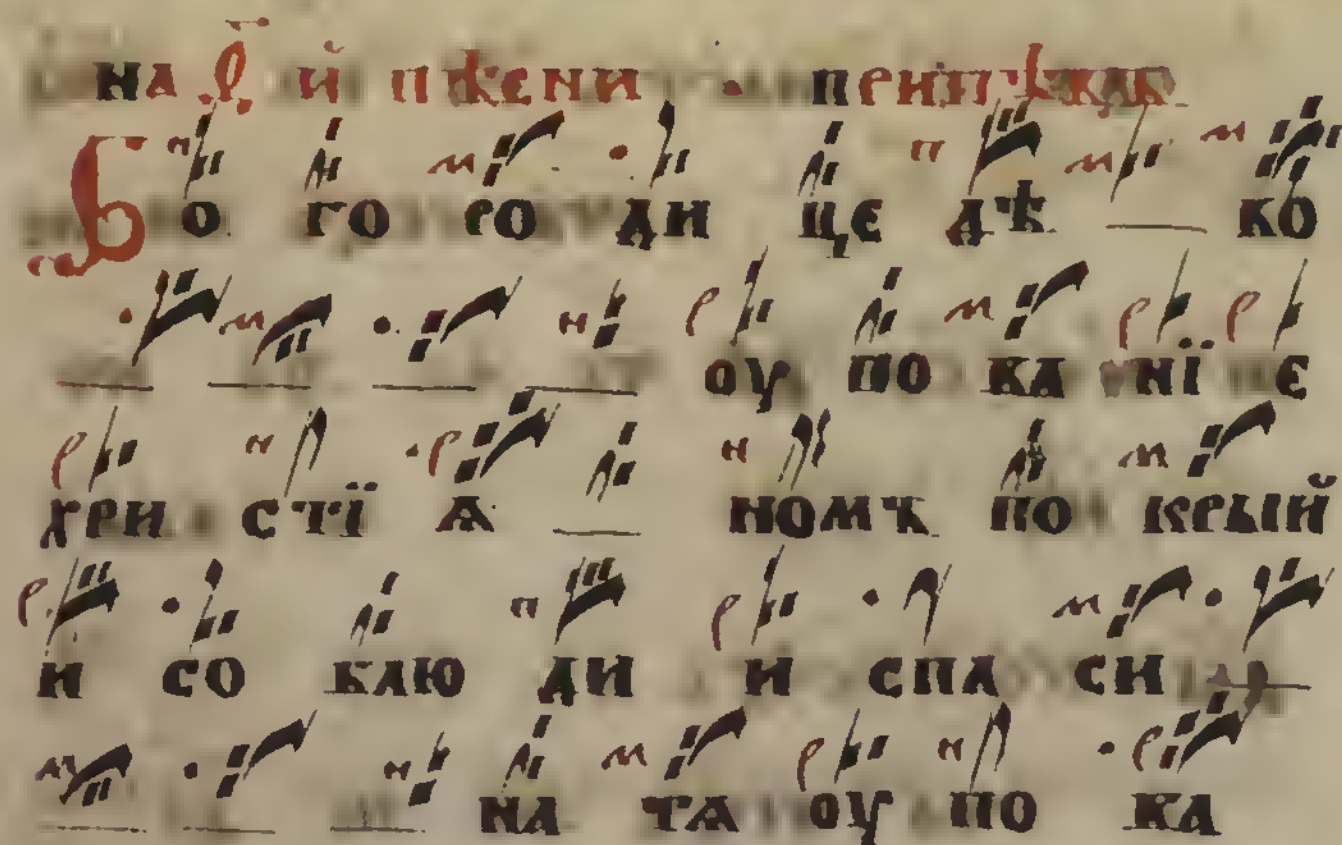 на й пѣсни ·
Бо го ро ди це дѣ во
оу по ва нї є
хри стї ѧ номъ по крый
и со блю ди и спа си
на тѧ оу по ва